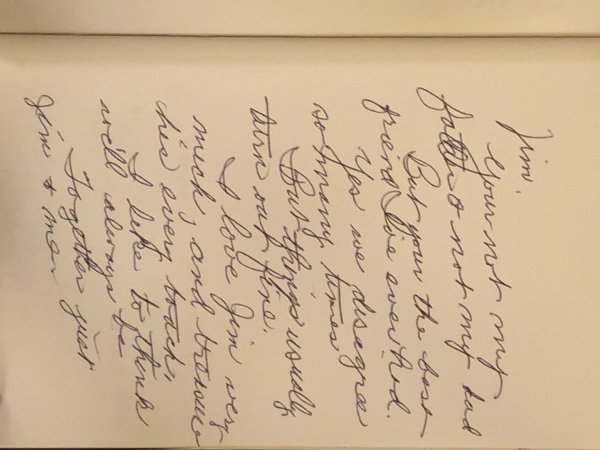 Jim.
Your not my
father & not my dad
But your the best
friend I've ever had.
Yes we disagree
so many times
But things usually
turn out fine.
I love Jim very
much, and treasure
his every touch,
I like to think
we'll always be
Together just
Jim & me.